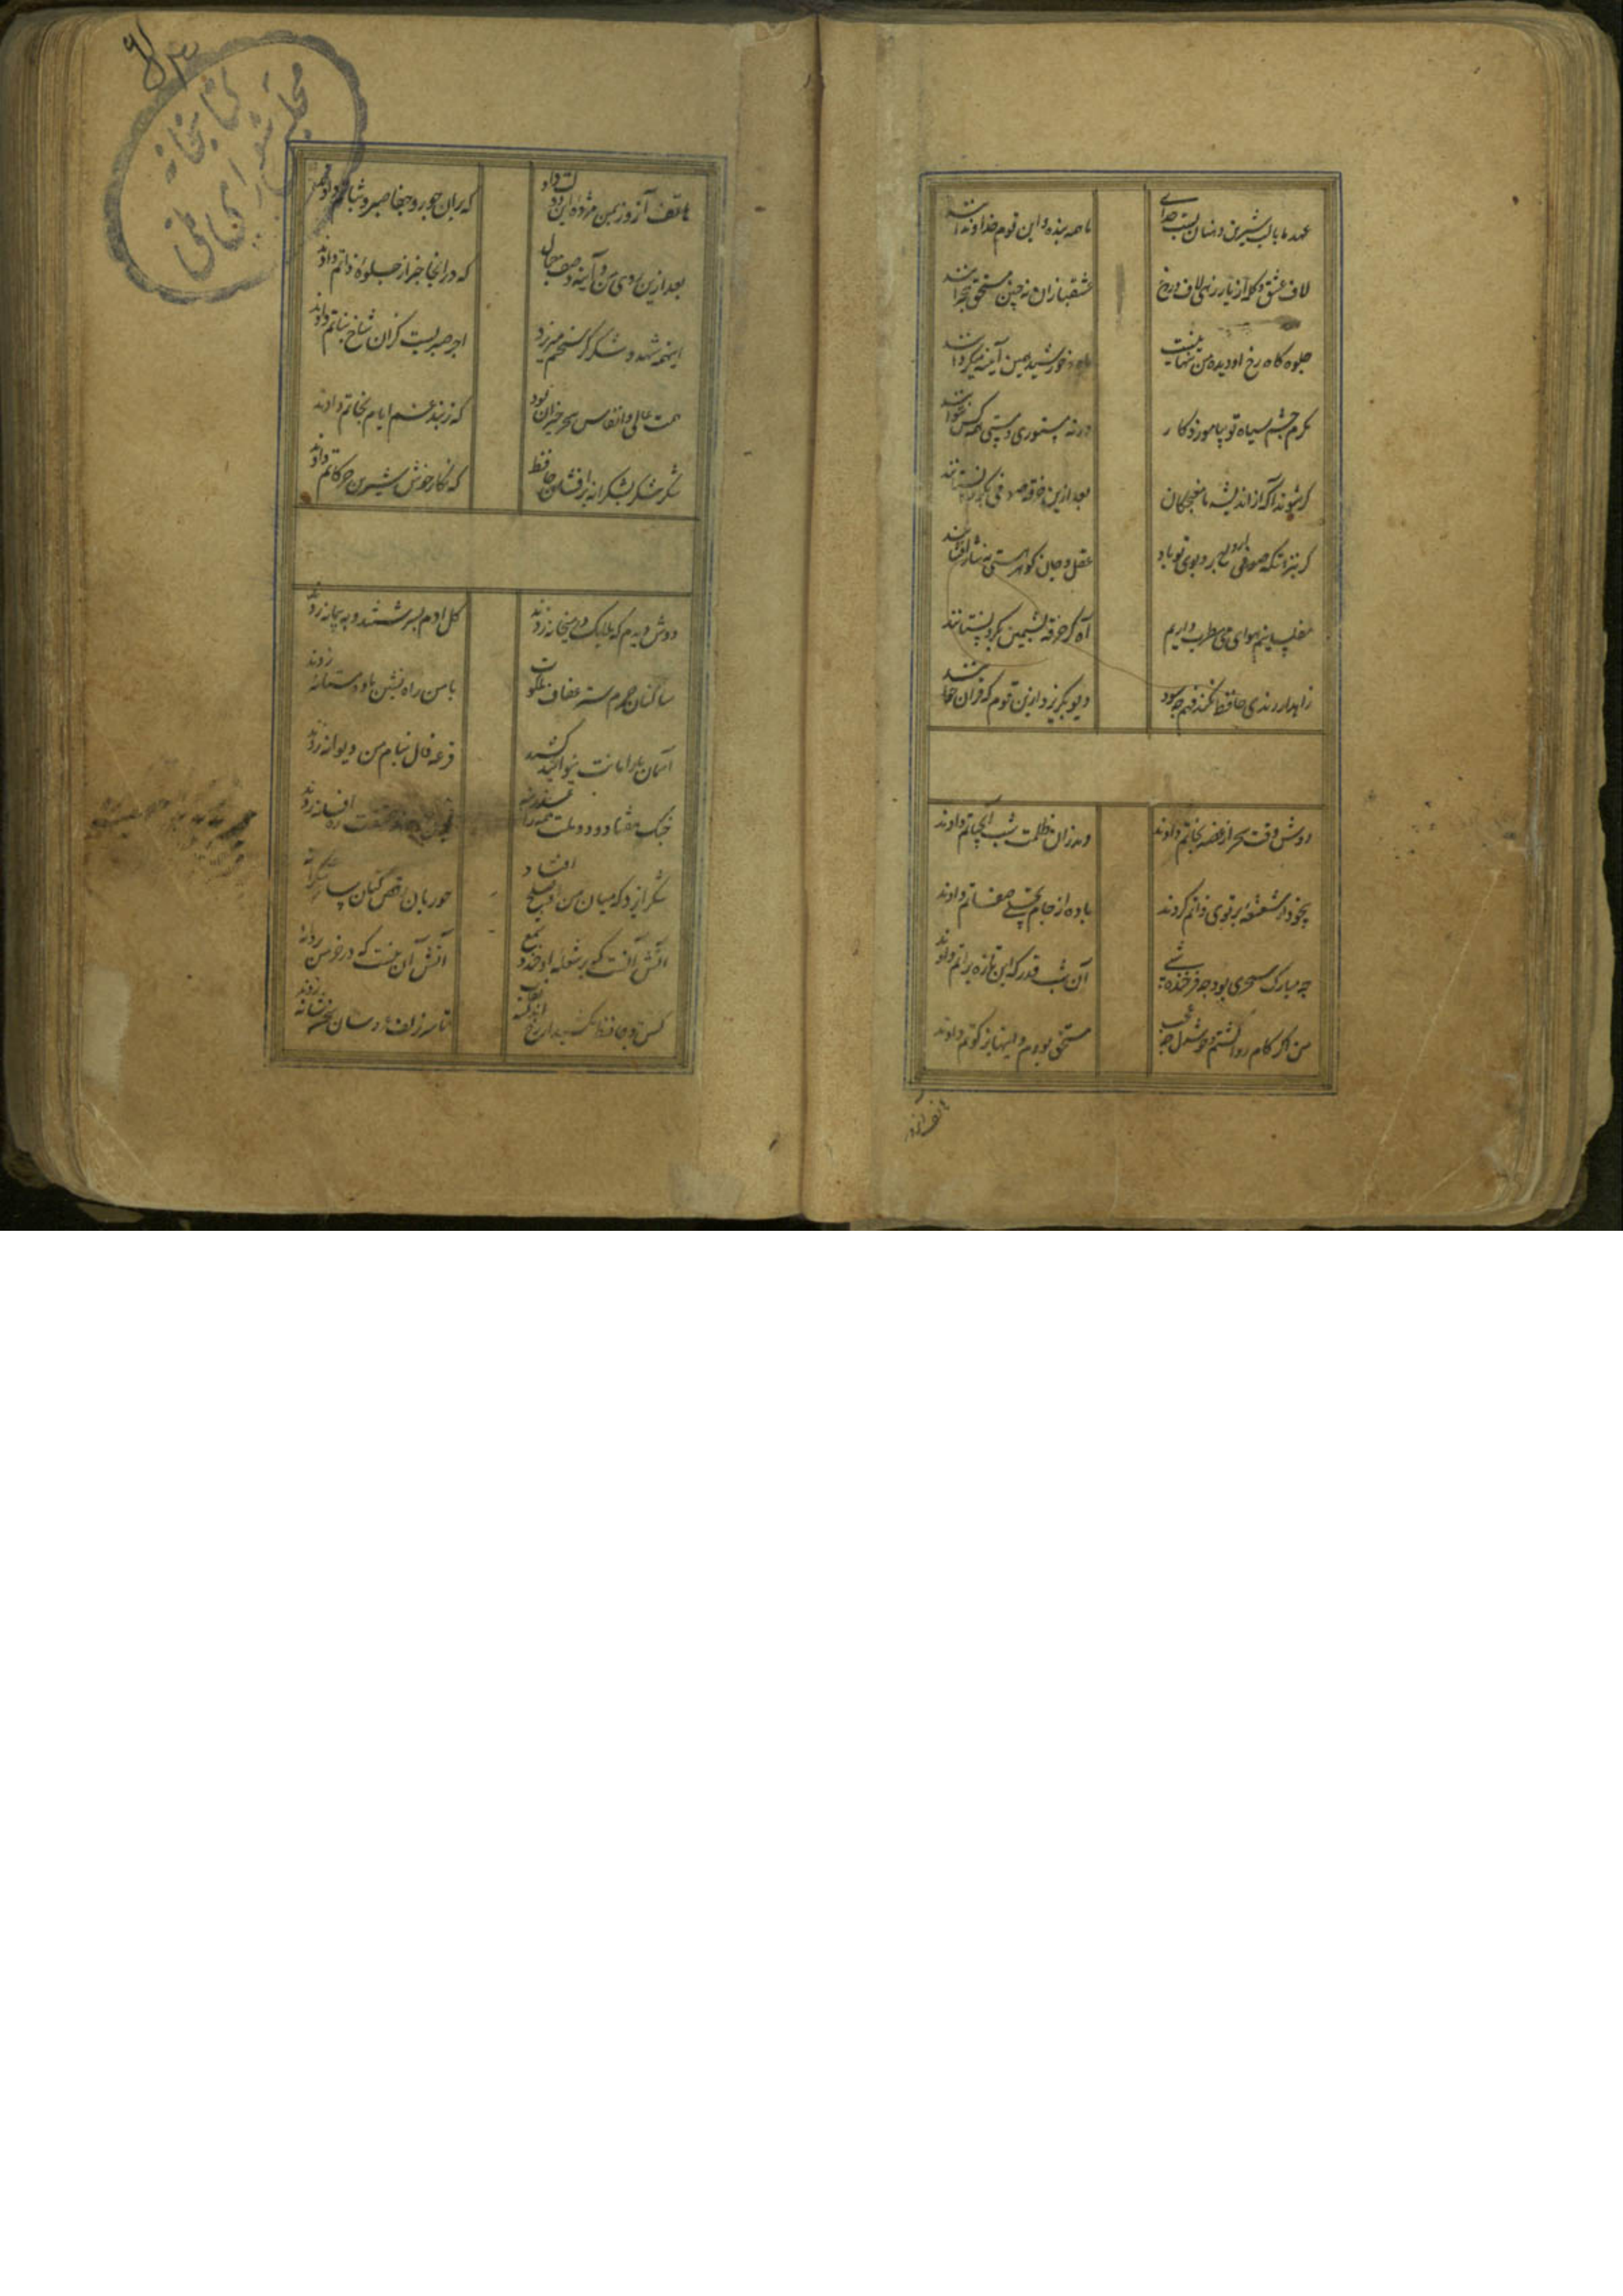 عهد ما با لب شیرین دهنان بست خدای
ما همه بنده و این قوم خداوندانند
لاف عشق و گله از یار زهی لاف دروغ
عشقبازان چنین مستحق هجرانند
جلوه گاه رخ او دیده من تنها نیست
ماه و خورشید همین آینه میگردانند
مگرم چشم سیاه تو بیاموزد کار
ورنه مستوری و مستی همه کس نتوانند
گر شوند آگه از اندیشه ما مغبچگان
بعد ازین خرقه صوفی بگرو نستانند
گر بنزهتگه ارواح برد بوی تو باد
عقل و جان گوهر هستی به نثار افشانند
مفلسانیم و هوای می و مطرب داریم
آه اگر خرقه پشمین بگرو نستانند
زاهد ار رندی حافظ نکند فهم چه سود
دیو بگریزد ازین قوم که قران خوانند
دوش وقت سحر از غصه نجاتم دادند
وندران ظلمت شب آب حیاتم دادند
بیخود از شعشعه پرتوی ذاتم کردند
باده از جام تجلی صفاتم دادند
چه مبارک سحری بود و چه فرخنده شبی
آن شب قدر که این تازه براتم دادند
من اگر کام روا گشتم و خوشدل چه عجب
مستحق بودم و اینها بزکوتم دادند
هاتف آنروز
هاتف آنروز بمن مژده این دولت داد
که بران جور و جفا صبر و ثباتم دادند
بعد ازین روی من و آینه وصف جمال
که در آنجا خبر از جلوه ذاتم دادند
اینهمه شهد و شکر کز سخنم میریزد
اجر صبریست کزان شاخ نباتم دادند
همت عالی و انفاس سحرخیزان بود
که ز بند غم ایام نجاتم دادند
شکر شکر بشکرانه برافشان حافظ
که نگار خوش شیرین حرکاتم دادند
دوش دیدم که ملایک در میخانه زدند
گل ادم بسرشتند و به پیمانه زدند
ساکنان حرم ستر عفاف ملکوت
با من راه نشین باده مستانه زدند
آسمان بار امانت نتوانست کشید
قرعه فال بنام من دیوانه زدند
جنگ هفتاد و دو ملت همه را عذر بنه
حقیقت ره افسانه زدند
شکر ایزد که میان من و او صلح افتاد
حوریان رقص کنان ساغر شکرانه
آتش آن نیست که بر شعله او خندد شمع
آتش آن است که در خرمن پروانه زدند
کس چو حافظ نکشید از رخ اندیشه نقاب
تا سر زلف عروسان سخن شانه زدند
کتابخانه
مجلس شورای ملی